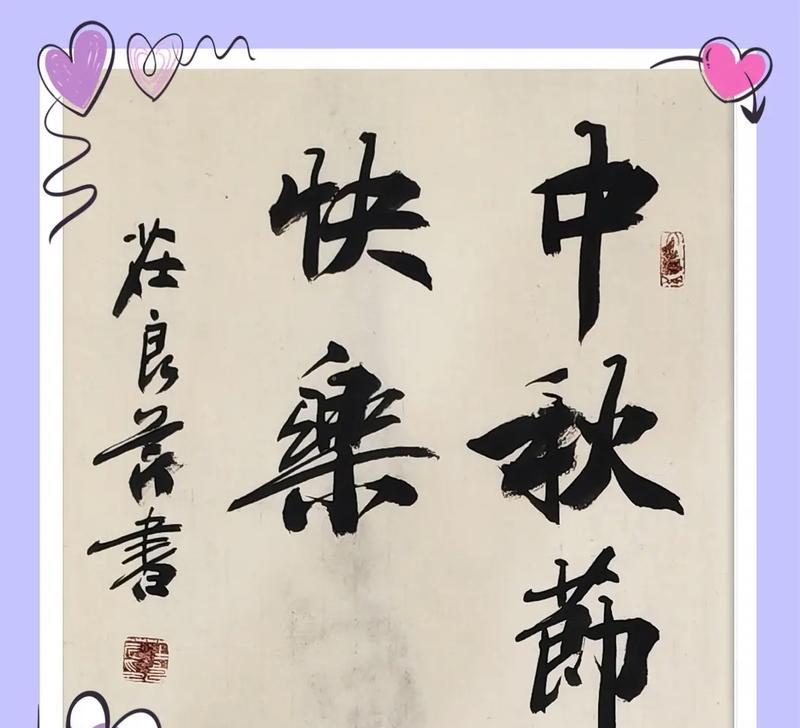 中秋節
快樂
莊良芳書